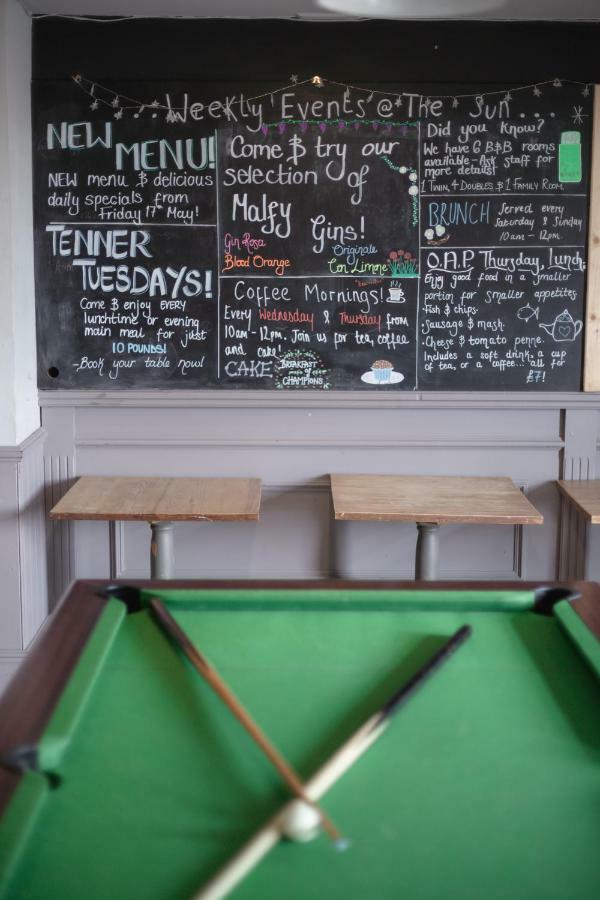 ...Weekly Events @ The Sun...
NEW
MENU!
NEW menu & delicious
daily specials from
Friday 17th May!
TENNER
TUESDAYS!
Come & enjoy EVERY
lunchtime or evening
main meal for just
10 POUNDS!
-Book your table now!
Come & try our
selection of
Malfy
Gins!
Gin Rosa
Originale
Blood Orange
Con Limone
Coffee Mornings!
Every Wednesday & Thursday from
10am-12pm. Join us for tea, coffee
and cake!
CAKE
BREAKFAST
of
CHAMPIONS
Did you know?
We have 6 B&B rooms
available - Ask staff for
more details!
1 TWIN, 4 DOUBLES & 1 FAMILY ROOM.
BRUNCH Served every
Saturday & Sunday
10am - 12pm.
O.A.P Thursday lunch.
Enjoy good food in a smaller
portion for smaller appetites
·Fish & chips.
·Sausage & mash.
·Cheese & tomato penne.
Includes a soft drink, a cup
of tea, or a coffee... all for
£7!